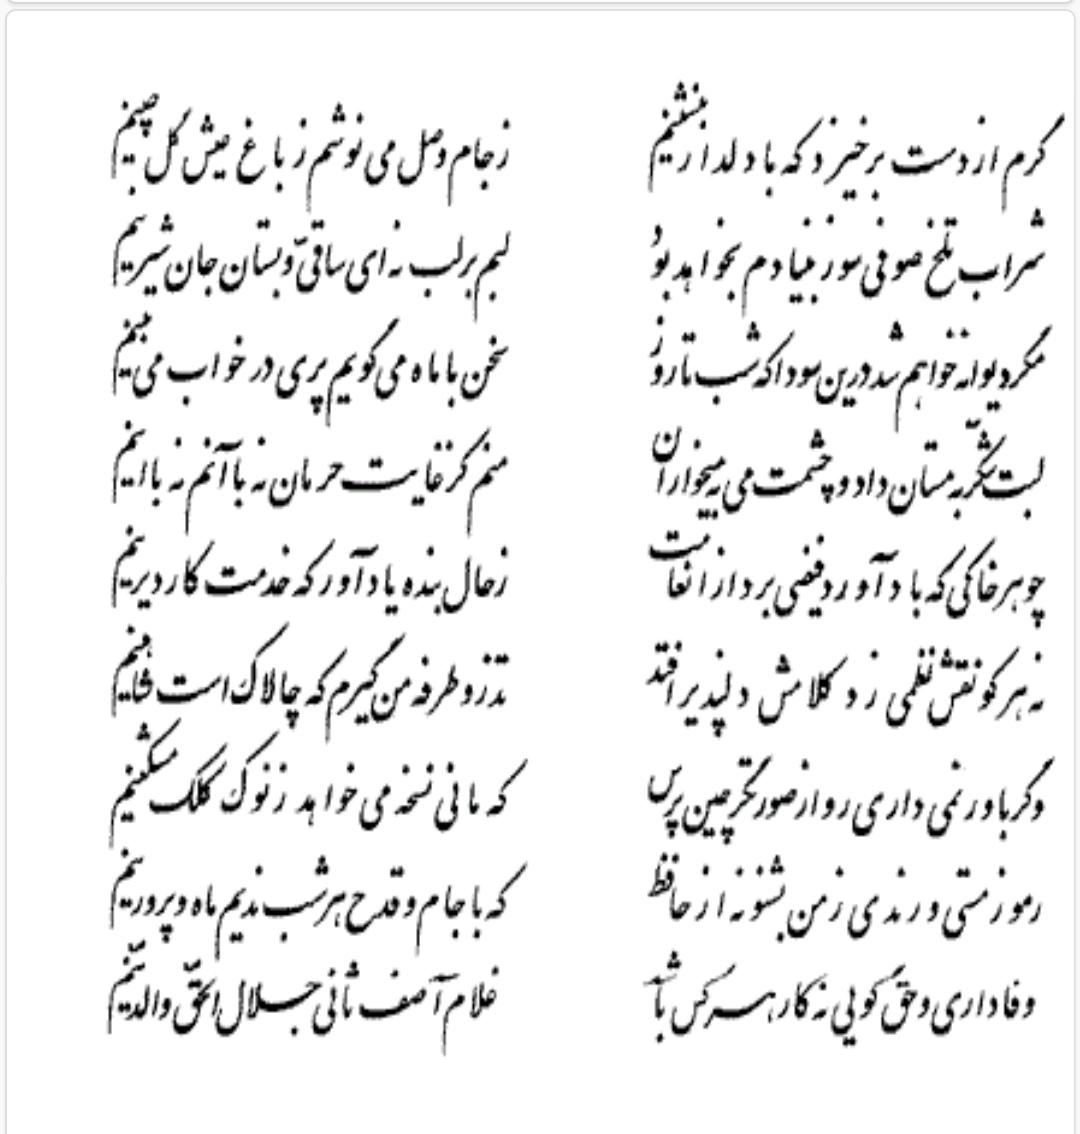 گرم از دست برخیزد که با دلدار بنشینم
ز جام وصل می نوشم ز باغ عیش گل چینم
شراب تلخ صوفی سوز بنیادم بخواهد برد
لبم بر لب نه ای ساقی و بستان جان شیرینم
مگر دیوانه خواهم شد درین سودا که شب تا روز
سخن با ماه می گویم پری در خواب می بینم
لبت شکر به مستان داد و چشمت می به میخواران
منم کز غایت حرمان نه با آنم نه با اینم
چو هر خاکی که باد آورد فیضی برد از انعامت
ز حال بنده یاد آور که خدمتکار دیرینم
نه هر کو نقش نظمی زد کلامش دلپذیر افتد
تذرو طرفه من گیرم که چالاک است شاهینم
وگر باور نمی داری رو از صورتگر چین پرس
که مانی نسخه می خواهد ز نوک کلک مشکینم
رموز مستی و رندی ز من بشنو نه از حافظ
که با جام و قدح هر شب ندیم ماه و پروینم
وفاداری و حق گویی نه کار هر کسی باشد
غلام آصف ثانی جلال الحق والدینم